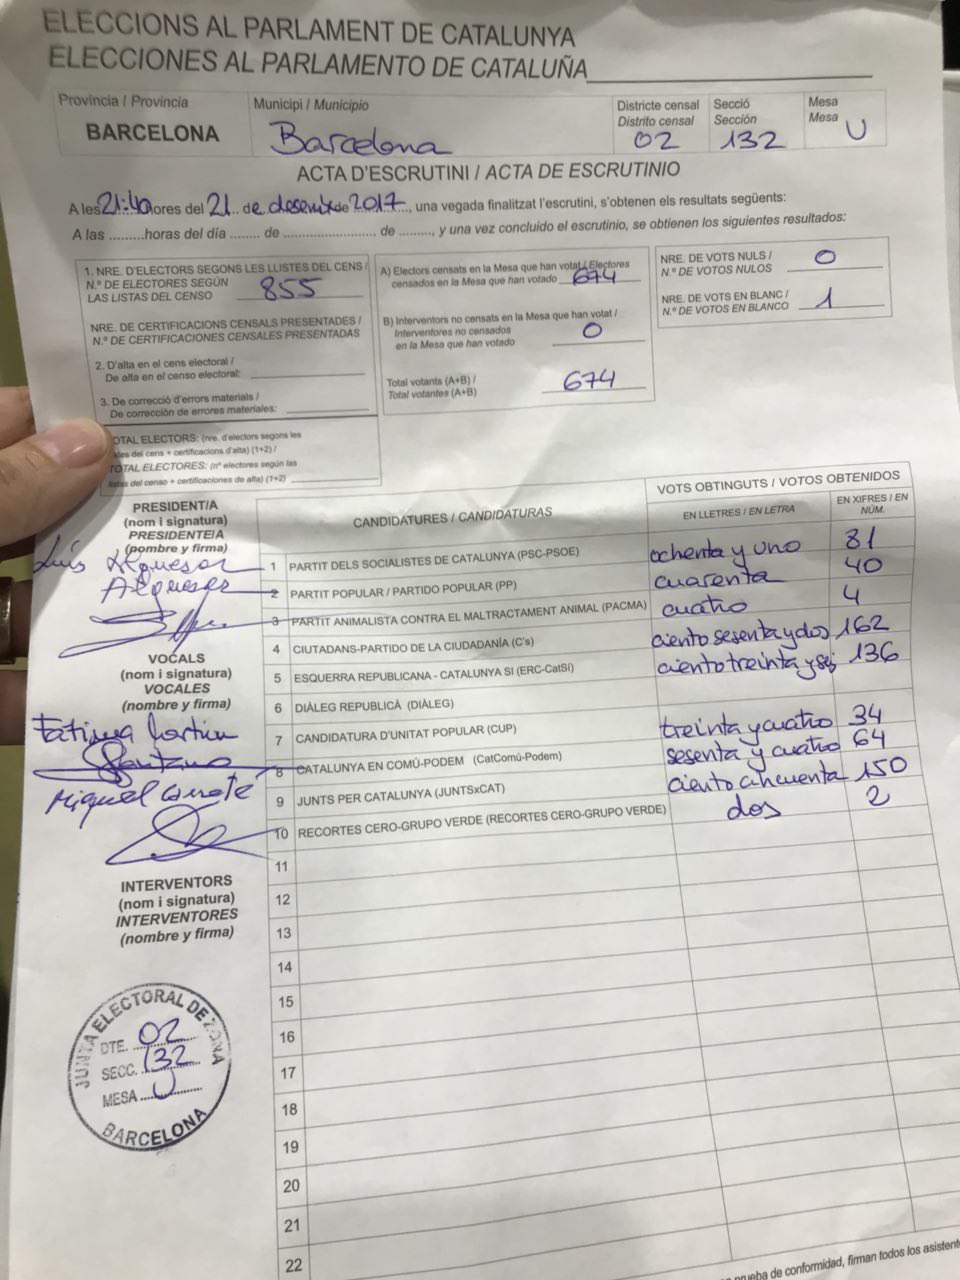 ELECCIONS AL PARLAMENT DE CATALUNYA
ELECCIONES AL PARLAMENTO DE CATALUÑA
Província / Provincia
BARCELONA
Municipi / Municipio
Barcelona
Districte censal
Distrito censal
02
Secció
Sección
132
Mesa
Mesa
U
ACTA D'ESCRUTINI / ACTA DE ESCRUTINIO
A les 21:40 hores del 21 de desembre de 2017, una vegada finalitzat l'escrutini, s'obtenen els resultats següents:
A las .........horas del día ........ de ........................ de ........., y una vez concluido el escrutinio, se obtienen los siguientes resultados:
1. NRE. D'ELECTORS SEGONS LES LLISTES DEL CENS /
N.º DE ELECTORES SEGÚN
LAS LISTAS DEL CENSO 855
NRE. DE CERTIFICACIONS CENSALS PRESENTADES /
N.º DE CERTIFICACIONES CENSALES PRESENTADAS
2. D'alta en el cens electoral /
De alta en el censo electoral:
3. De correcció d'errors materials /
De corrección de errores materiales:
OTAL ELECTORS: (nre. d'electors segons les
tes del cens + certificacions d'alta) (1+2) /
TOTAL ELECTORES: (nº electores según las
listas del censo + certificaciones de alta) (1+2)
A) Electors censats en la Mesa que han votat / Electores
censados en la Mesa que han votado 674
B) Interventors no censats en la Mesa que han votat /
Interventores no censados
en la Mesa que han votado 0
Total votants (A+B) /
Total votantes (A+B) 674
NRE. DE VOTS NULS /
N.º DE VOTOS NULOS 0
NRE. DE VOTS EN BLANC /
N.º DE VOTOS EN BLANCO 1
PRESIDENT/A
(nom i signatura)
PRESIDENTE/A
(nombre y firma)
Luis
VOCALS
(nom i signatura)
VOCALES
(nombre y firma)
Miquel
INTERVENTORS
(nom i signatura)
INTERVENTORES
(nombre y firma)
CANDIDATURES / CANDIDATURAS
VOTS OBTINGUTS / VOTOS OBTENIDOS
EN LLETRES / EN LETRA
EN XIFRES / EN
NÚM.
1 PARTIT DELS SOCIALISTES DE CATALUNYA (PSC-PSOE) ochenta y uno 81
2 PARTIT POPULAR / PARTIDO POPULAR (PP) cuarenta 40
3 PARTIT ANIMALISTA CONTRA EL MALTRACTAMENT ANIMAL (PACMA) cuatro 4
4 CIUTADANS-PARTIDO DE LA CIUDADANÍA (C's) ciento sesenta y dos 162
5 ESQUERRA REPUBLICANA - CATALUNYA SI (ERC-CatSí) ciento treinta y seis 136
6 DIÀLEG REPUBLICÀ (DIÀLEG)
7 CANDIDATURA D'UNITAT POPULAR (CUP) treinta y cuatro 34
8 CATALUNYA EN COMÚ-PODEM (CatComú-Podem) sesenta y cuatro 64
9 JUNTS PER CATALUNYA (JUNTSxCAT) ciento cincuenta 150
10 RECORTES CERO-GRUPO VERDE (RECORTES CERO-GRUPO VERDE) dos 2
11
12
13
14
15
16
17
18
19
20
21
22
JUNTA ELECTORAL DE ZONA
DTE. 02
SECC. 132
MESA U
BARCELONA
prueba de conformidad, firman todos los asistent